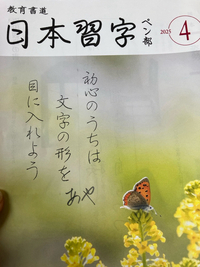 教育書道
日本習字
ペン部
2025
4
初心のうちは
文字の形を
目に入れよう
あや